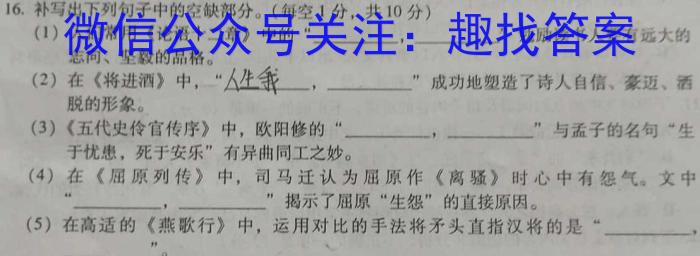 16. 补写出下列句子中的空缺部分。(每空1分,共10分)
微信公众号关注:趣找答案
(1) 常用《论语》章》 的“ 远大的
志向、坚毅的品格。
(2) 在《将进酒》中,“人生我,________”成功地塑造了诗人自信、豪迈、洒
脱的形象。
(3)《五代史伶官传序》中,欧阳修的“________,________”与孟子的名句“生
于忧患,死于安乐”有异曲同工之妙。
(4) 在《屈原列传》中,司马迁认为屈原作《离骚》时心中有怨气。文中
“________,________”揭示了屈原“生怨”的直接原因。
(5) 在高适的《燕歌行》中,运用对比的手法将矛头直指汉将的是“________,
________”。